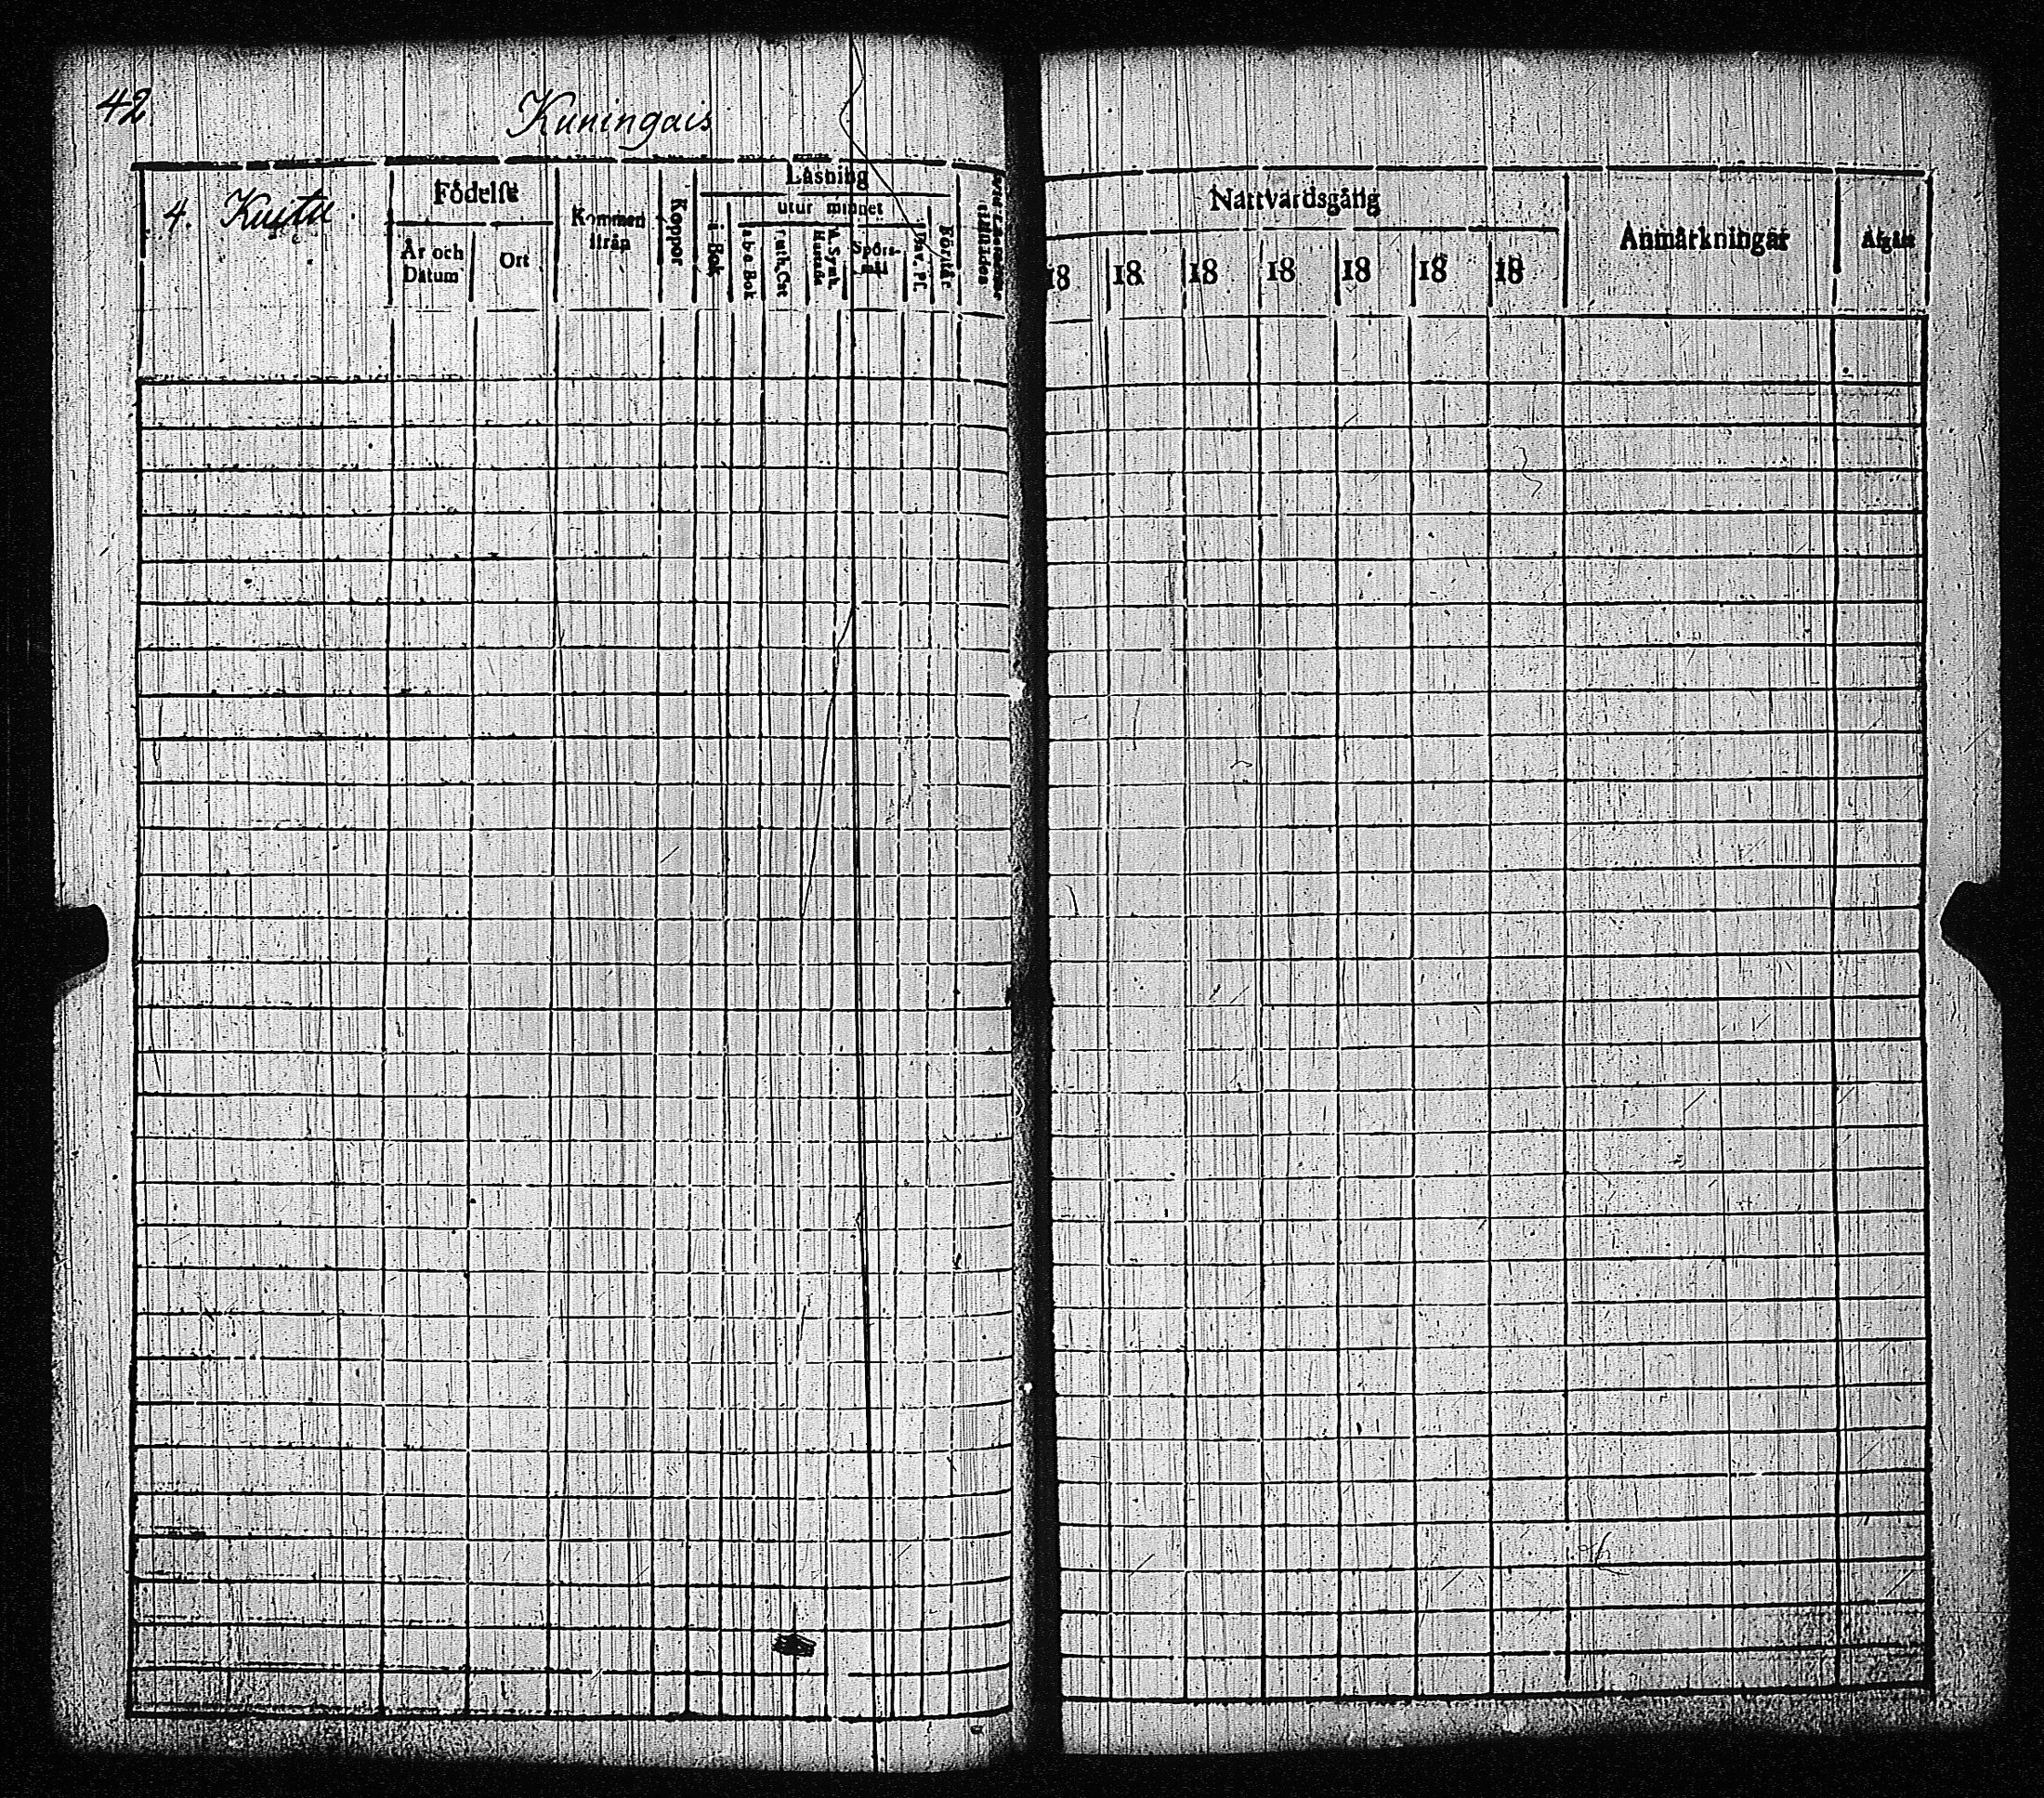 42.
Kuningais
4. Kusta
Födelse
År och Datum
Ort
Kommen ifrån
Koppor
Läsning
i Bok
utur minnet
a b c Bok
Luth. Cat.
Hustafl.
A. Symb.
Spörs-mål
Dav. Ps.
Förstår
Nattvardsgång
18 18 18 18 18 18 18
Anmärkningar
Afgått